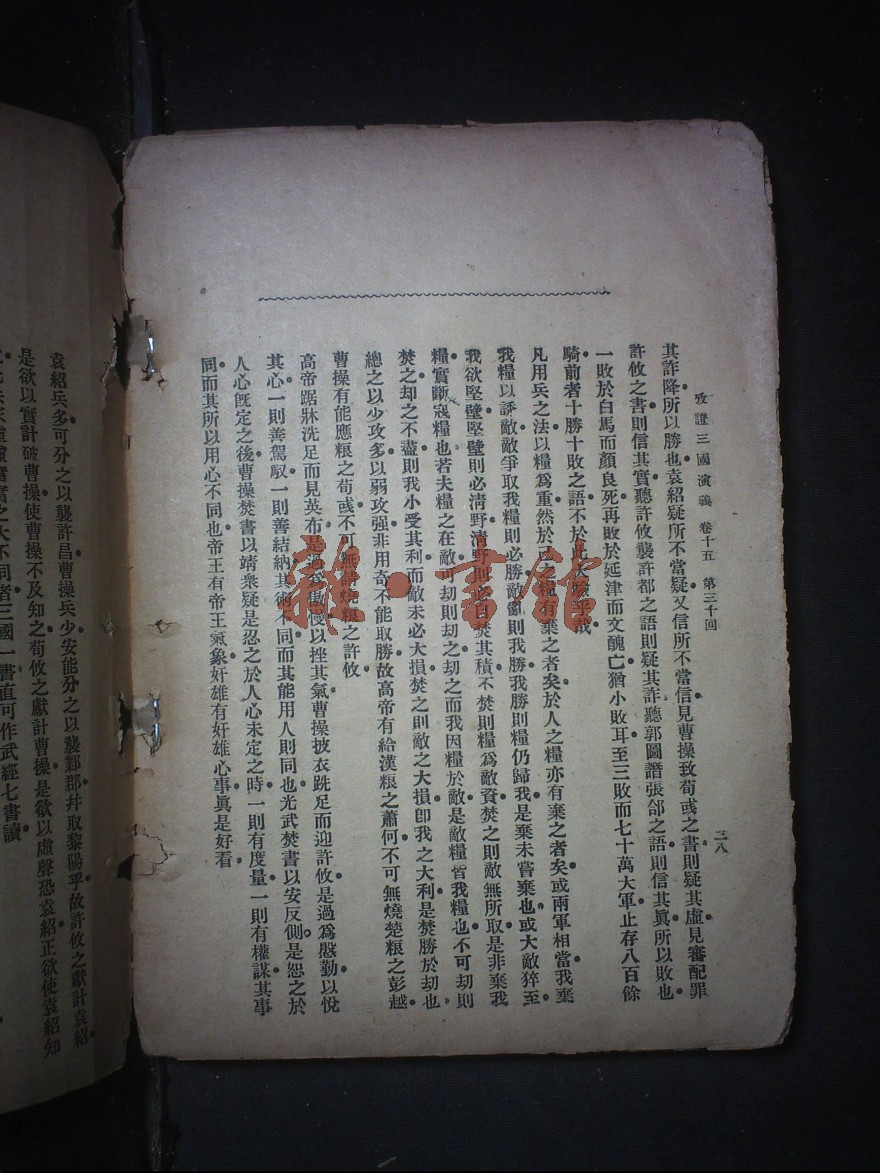 攷證三國演義 卷十五 第三十回 三八
其詐降所以勝也袁紹疑所不當疑又信所不當信見曹操致荀彧之書則疑其虛見審配罪
許攸之書則信其實聽許攸襲許都之語則疑其詐聽郭圖譖張郃之語則信其眞所以敗也
一敗於白馬而顏良死再敗於延津而文醜亡猶小敗耳至三敗而七十萬大軍止存八百餘
騎前者十勝十敗之語不於此大驗乎哉
凡用兵之法以糧爲重然於己之糧有棄之者矣於人之糧亦有棄之者矣或兩軍相當我棄
我糧以誘敵敵爭取我糧則必勝敵亂則我勝我勝則糧仍歸我是棄未嘗棄也或大敵猝至
我欲堅壁堅壁則必淸野淸野則必自焚其積不焚則糧爲敵資焚之則敵無所取是非棄我
糧實斷寇糧也若夫糧之在敵可刧則刧之刧之而我因糧於敵是敵糧皆我糧也不可刧則
焚之却之不盡則我小受其利而敵未必大損焚之則敵之大損卽我之大利是焚勝於刧也
總之以少攻多以弱攻强非用奇不能取勝故高帝有給漢粮之蕭何不可無燒楚粮之彭越
曹操有能應粮之荀彧不可無計燒粮之許攸
高帝踞牀洗足而見英布是過爲傲慢以挫其氣曹操披衣跣足而迎許攸是過爲慇勤以悅
其心一則善駕馭一則善結納其術不同而其能用人則同也光武焚書以安反側是恕之於
人心旣定之後曹操焚書以靖衆疑是忍之於人心未定之時一則有度量一則有權謀其事
同而其所以用心不同也帝王有帝王氣象奸雄有奸雄心事眞是好看
袁紹兵多可分之以襲許昌曹操兵少安能分之以襲鄴郡幷取黎陽乎故許攸之獻計袁紹
是欲以實計破曹操使曹操不及知之荀攸之獻計曹操是欲以虛聲恐袁紹正欲使袁紹知
虛實之大不同者三國一書直可作武經七書讀
書館